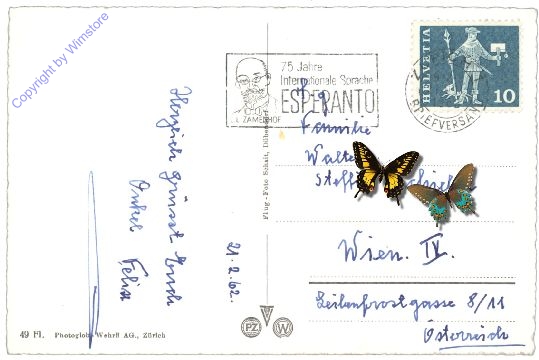 Copyright by Wimstore
75 Jahre
Internationale Sprache
ESPERANTO
L. ZAMENHOF
HELVETIA
10
BRIEFVERSAND
Herzlich grüsst Euch
Onkel Felix
21.2.62.
Flug-Foto
Familie
Walter
Steff
Wien. IV.
Zeilenfrostgasse 8/11
Österreich
49 Fl. Photoglob-Wehrli AG., Zürich
PZ
W